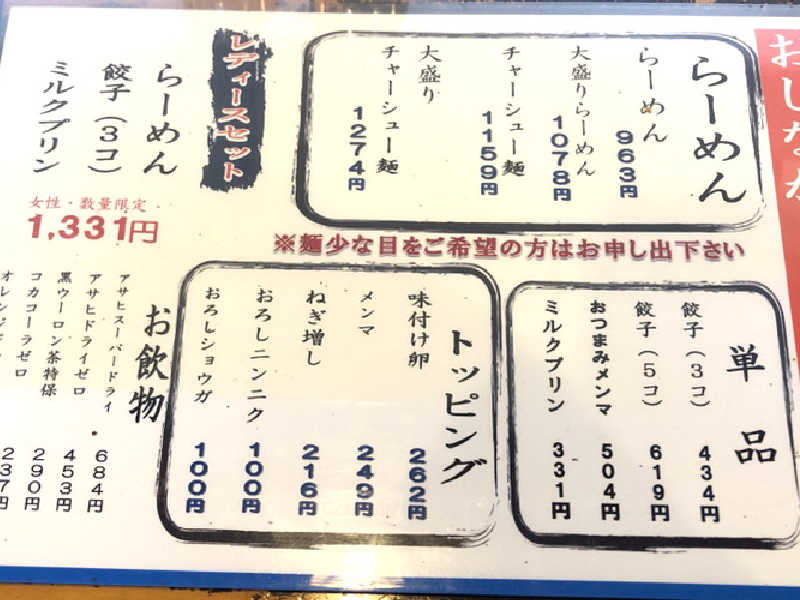 おしながき
らーめん
らーめん 963円
大盛りらーめん 1078円
チャーシュー麺 1159円
大盛り
チャーシュー麺 1274円
レディースセット
らーめん
餃子(3コ)
ミルクプリン
女性・数量限定
1,331円
※麺少な目をご希望の方はお申し出下さい
単品
餃子(3コ) 434円
餃子(5コ) 619円
おつまみメンマ 504円
ミルクプリン 331円
トッピング
味付け卵 262円
メンマ 249円
ねぎ増し 216円
おろしニンニク 100円
おろしショウガ 100円
お飲物
アサヒスーパードライ 684円
アサヒドライゼロ
黒ウーロン茶特保 453円
コカコーラゼロ 290円
237円